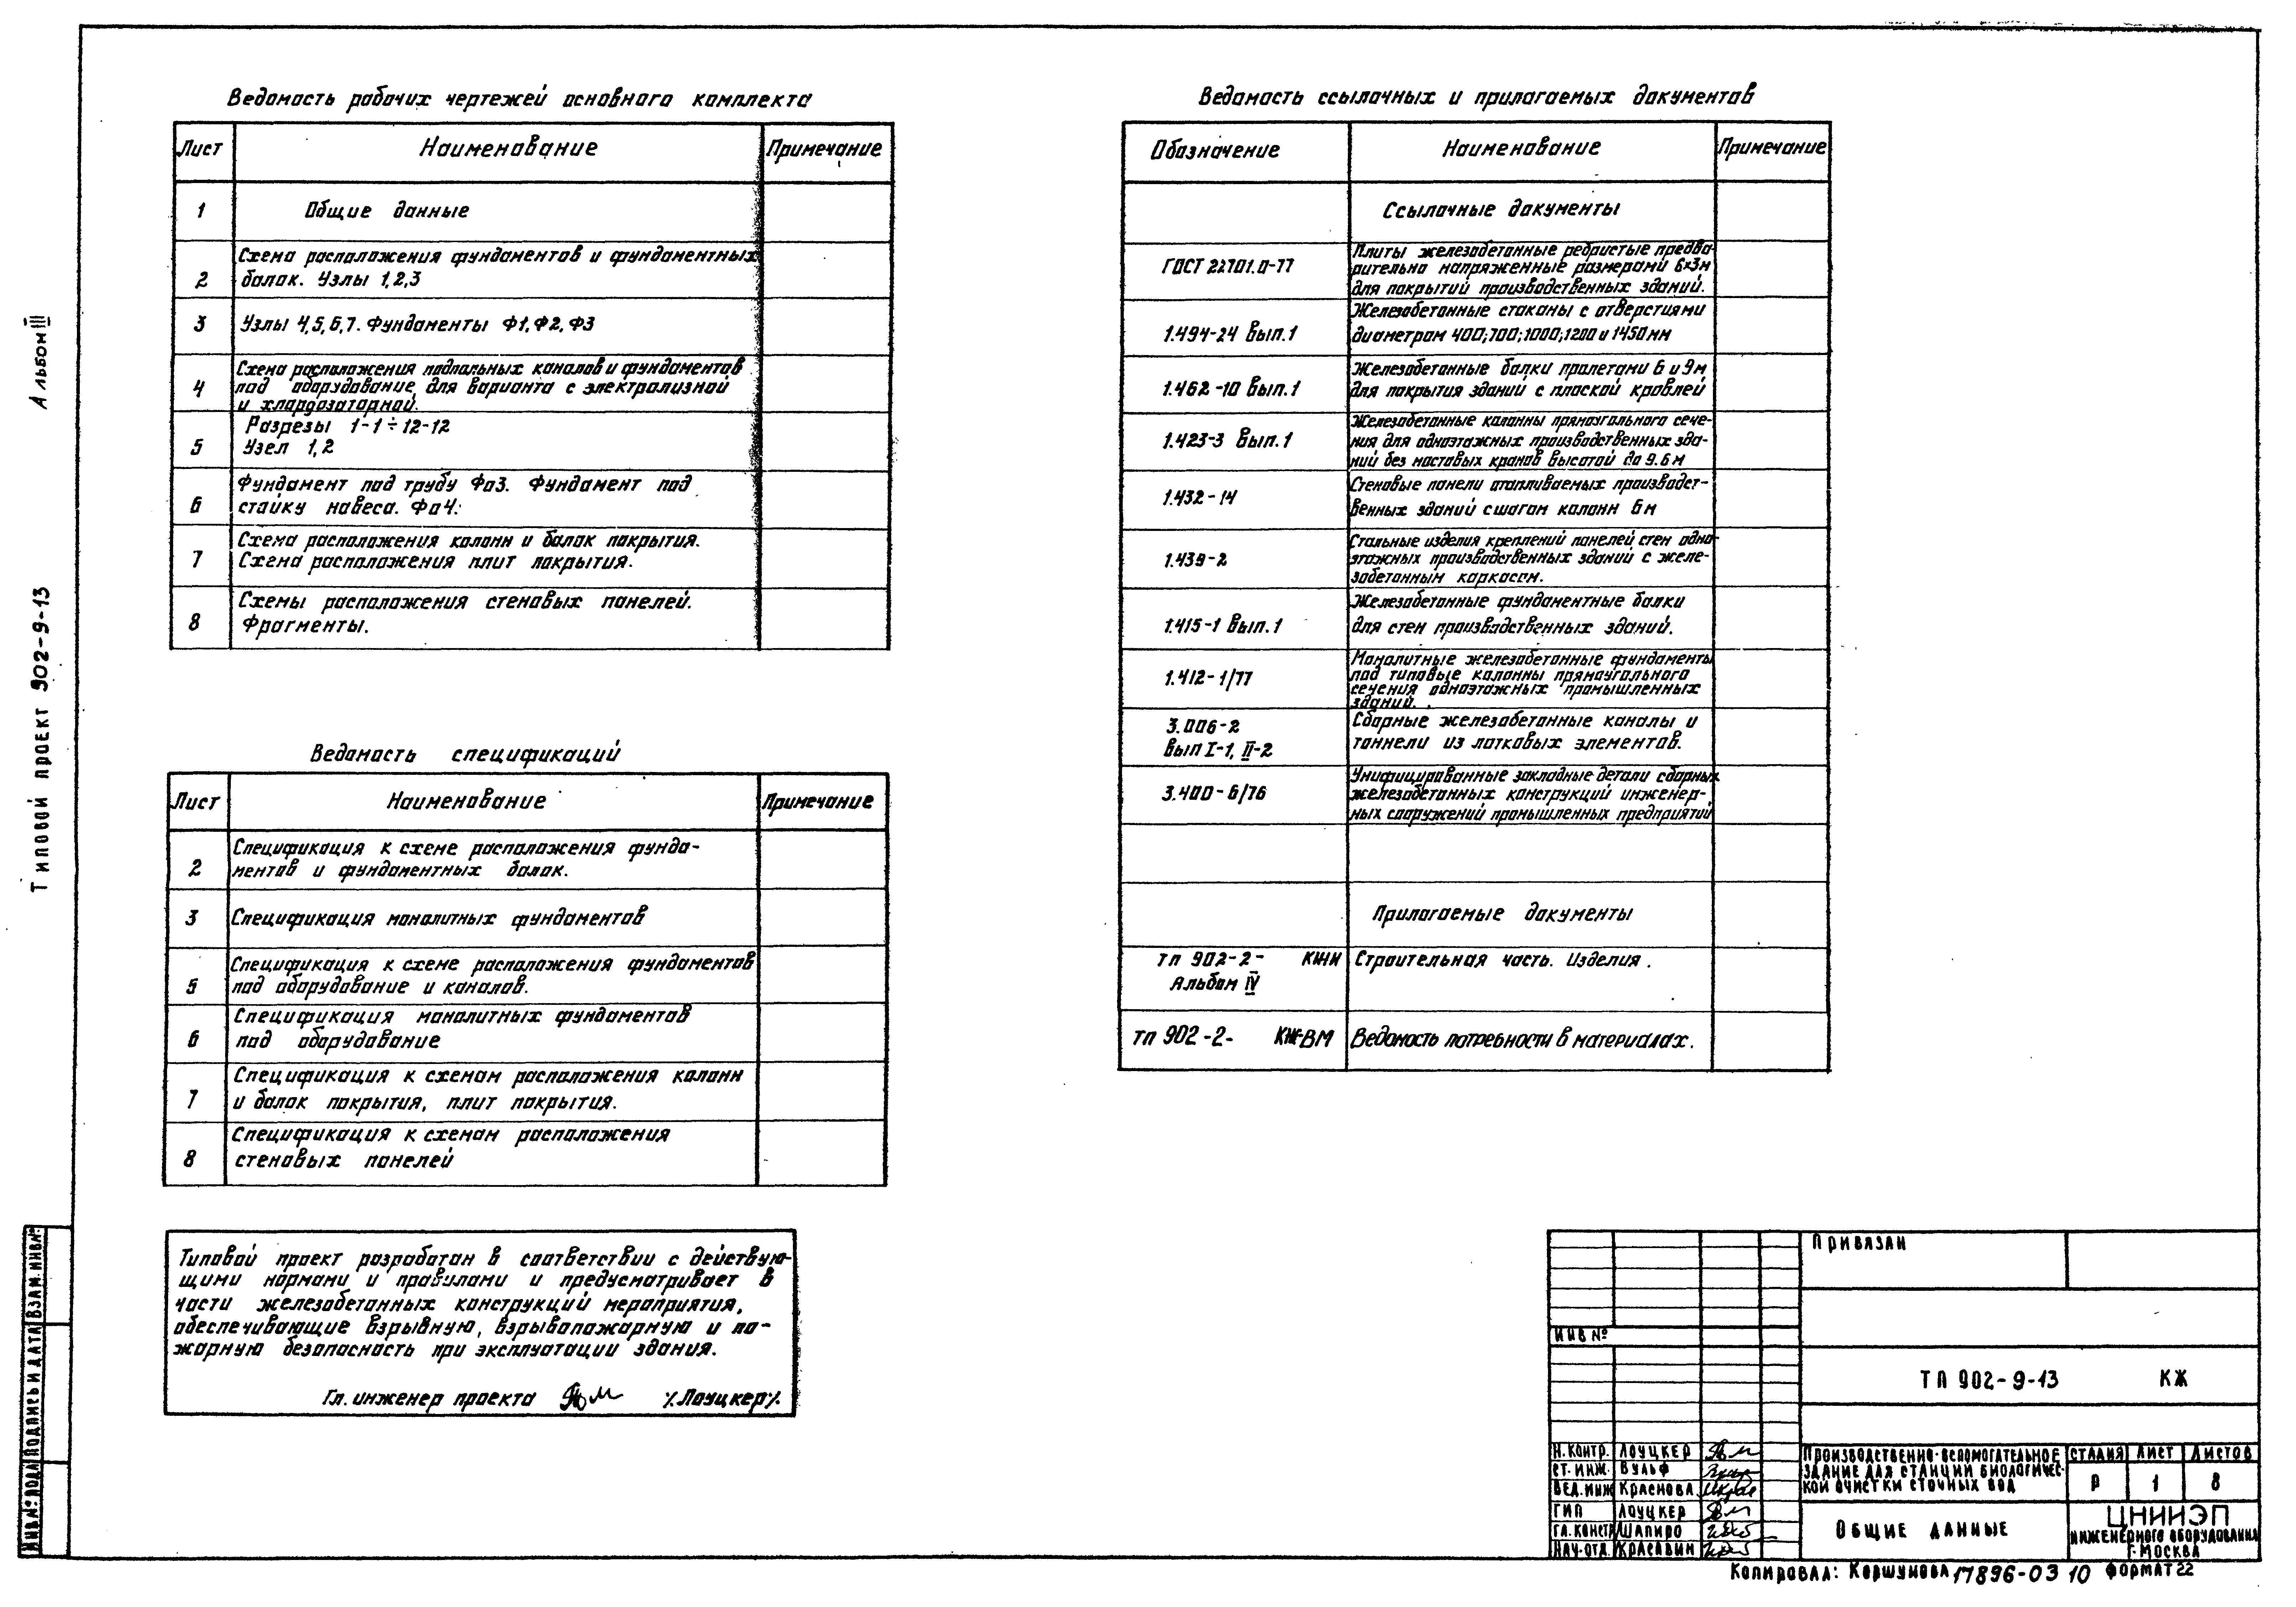 Альбом III
Типовой проект 902-9-13
Ведомость рабочих чертежей основного комплекта
Лист Наименование Примечание
1 Общие данные
Схема расположения фундаментов и фундаментных
2 балок. Узлы 1,2,3
3 Узлы 4,5,6,7. Фундаменты Ф1,Ф2,Ф3
Схема расположения подпольных каналов и фундаментов
4 под оборудование для варианта с электролизной
и хлордозаторной.
Разрезы 1-1÷12-12
5 Узел 1,2
Фундамент под трубу Фо3. Фундамент под
6 стойку навеса. Фо4.
Схема расположения колонн и балок покрытия.
7 Схема расположения плит покрытия.
Схемы расположения стеновых панелей.
8 Фрагменты.
Ведомость спецификаций
Лист Наименование Примечание
Спецификация к схеме расположения фунда-
2 ментов и фундаментных балок.
3 Спецификация монолитных фундаментов
Спецификация к схеме расположения фундаментов
5 под оборудование и каналов.
Спецификация монолитных фундаментов
6 под оборудование
Спецификация к схемам расположения колонн
7 и балок покрытия, плит покрытия.
Спецификация к схемам расположения
8 стеновых панелей
Типовой проект разработан в соответствии с действую-
щими нормами и правилами и предусматривает в
части железобетонных конструкций мероприятия,
обеспечивающие взрывную, взрывопожарную и по-
жарную безопасность при эксплуатации здания.
Гл. инженер проекта ⁒Лоуцкер⁒
Ведомость ссылочных и прилагаемых документов
Обозначение Наименование Примечание
Ссылочные документы
Плиты железобетонные ребристые предва-
ГОСТ 22701.0-77 рительно напряженные размерами 6×3м
для покрытий производственных зданий.
Железобетонные стаканы с отверстиями
1.494-24 Вып.1 диаметром 400;700;1000;1200 и 1450мм
Железобетонные балки пролетами 6 и 9м
1.462-10 Вып.1 для покрытия зданий с плоской кровлей
Железобетонные колонны прямоугольного сече-
1.423-3 Вып.1 ния для одноэтажных производственных зда-
ний без мостовых кранов высотой до 9.6м
Стеновые панели отапливаемых производст-
1.432-14 венных зданий с шагом колонн 6м
Стальные изделия креплений панелей стен одно-
1.439-2 этажных производственных зданий с желе-
зобетонным каркасом.
Железобетонные фундаментные балки
1.415-1 Вып.1 для стен производственных зданий.
Монолитные железобетонные фундаменты
1.412-1/77 под типовые колонны прямоугольного
сечения одноэтажных промышленных
зданий.
3.006-2 Сборные железобетонные каналы и
вып I-1, II-2 тоннели из лотковых элементов.
Унифицированные закладные детали сборных
3.400-6/76 железобетонных конструкций инженер-
ных сооружений промышленных предприятий
Прилагаемые документы
тп 902-2- КЖИ Строительная часть. Изделия.
Альбом IV
тп 902-2- КЖ-ВМ Ведомость потребности в материалах.
Привязан
Инв №
ТП 902-9-13 КЖ
Н.контр. Лоуцкер
Ст.инж. Вульф
Вед.инж Краснова
ГИП Лоуцкер
Гл.констр Шапиро
Нач.отд. Красавин
Производственно-вспомогательное
здание для станций биологичес-
кой очистки сточных вод
Стадия Лист Листов
Р 1 8
Общие данные
ЦНИИЭП
инженерного оборудования
г.Москва
Инв.№ подл Подпись и дата Взам.инв.№
Копировал: Коршунова 17896-03 10 Формат 22